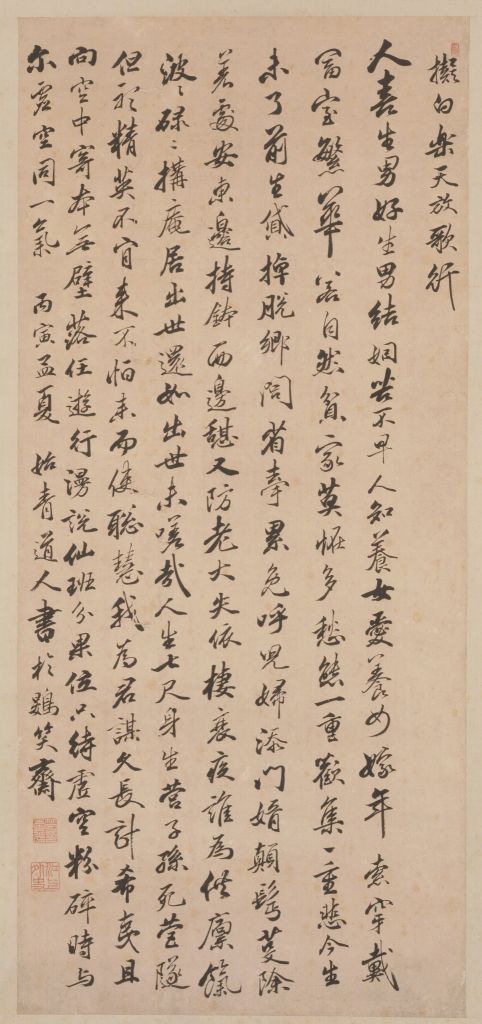 擬白樂天放歌行
人喜生男好生男結姻苦不早人知養女憂養女嫁年索穿戴
富室繁華若自然貧家莫惟多愁態一重歡集一重悲今生
未了前生貸掉脫鄉問省牽累免呼兒婦添門婿顛髩芟除
若處安東邊持鉢西邊憇又防老大失依棲衰疾誰為供廩餼
波波碌碌搆庵居出世還如出世未嗟哉人生七尺身生營子孫死營隧
但說精英不肯來不怕未而使聰慧我為君謀久長計希夷且
向空中寄本無壁落任遊行漫說仙班分果位只待虛空粉碎時與
尔虛空同一氣 丙寅孟夏 始青道人書於鷃笑齋